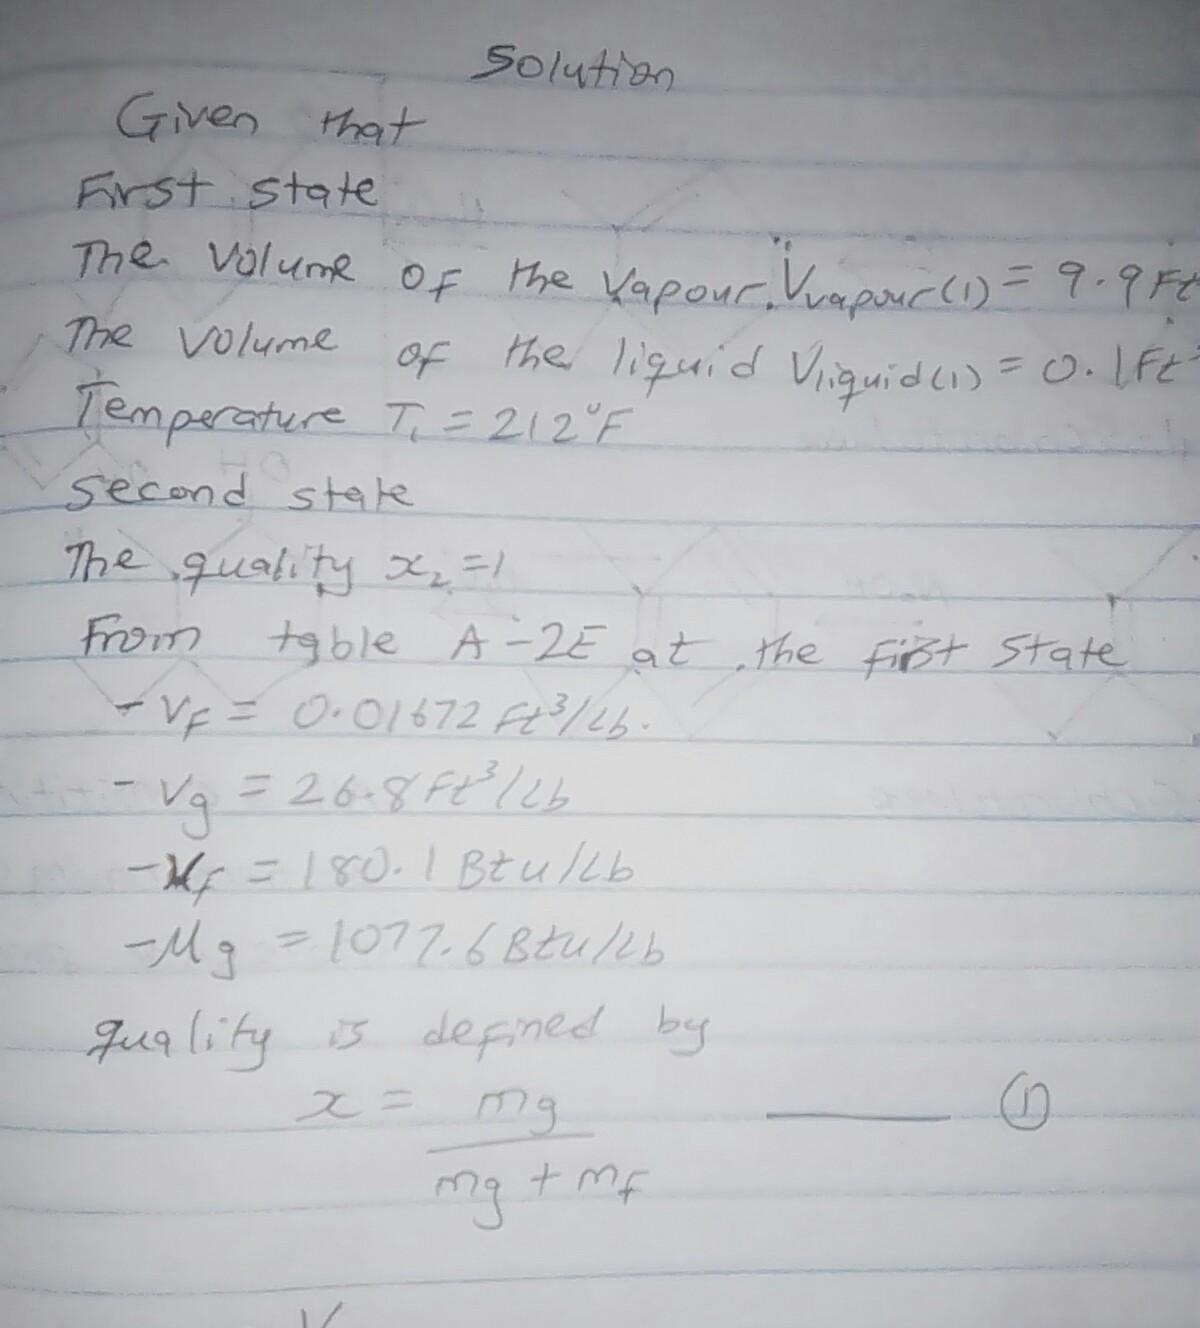 Solution
Given that
First state
The Volume of the Vapour. Vvapour(1) = 9.9 Ft
The volume of the liquid Vliquid(1) = 0.1 Ft³
Temperature T₁ = 212°F
Second state
The quality x₂ = 1
From table A-2E at the first State
- VF = 0.01672 Ft³/Lb.
- Vg = 26.8 Ft³/Lb
- uf = 180.1 Btu/Lb
- Mg = 1077.6 Btu/Lb
quality is defined by
x = mg ——— (1)
mg + mf
V